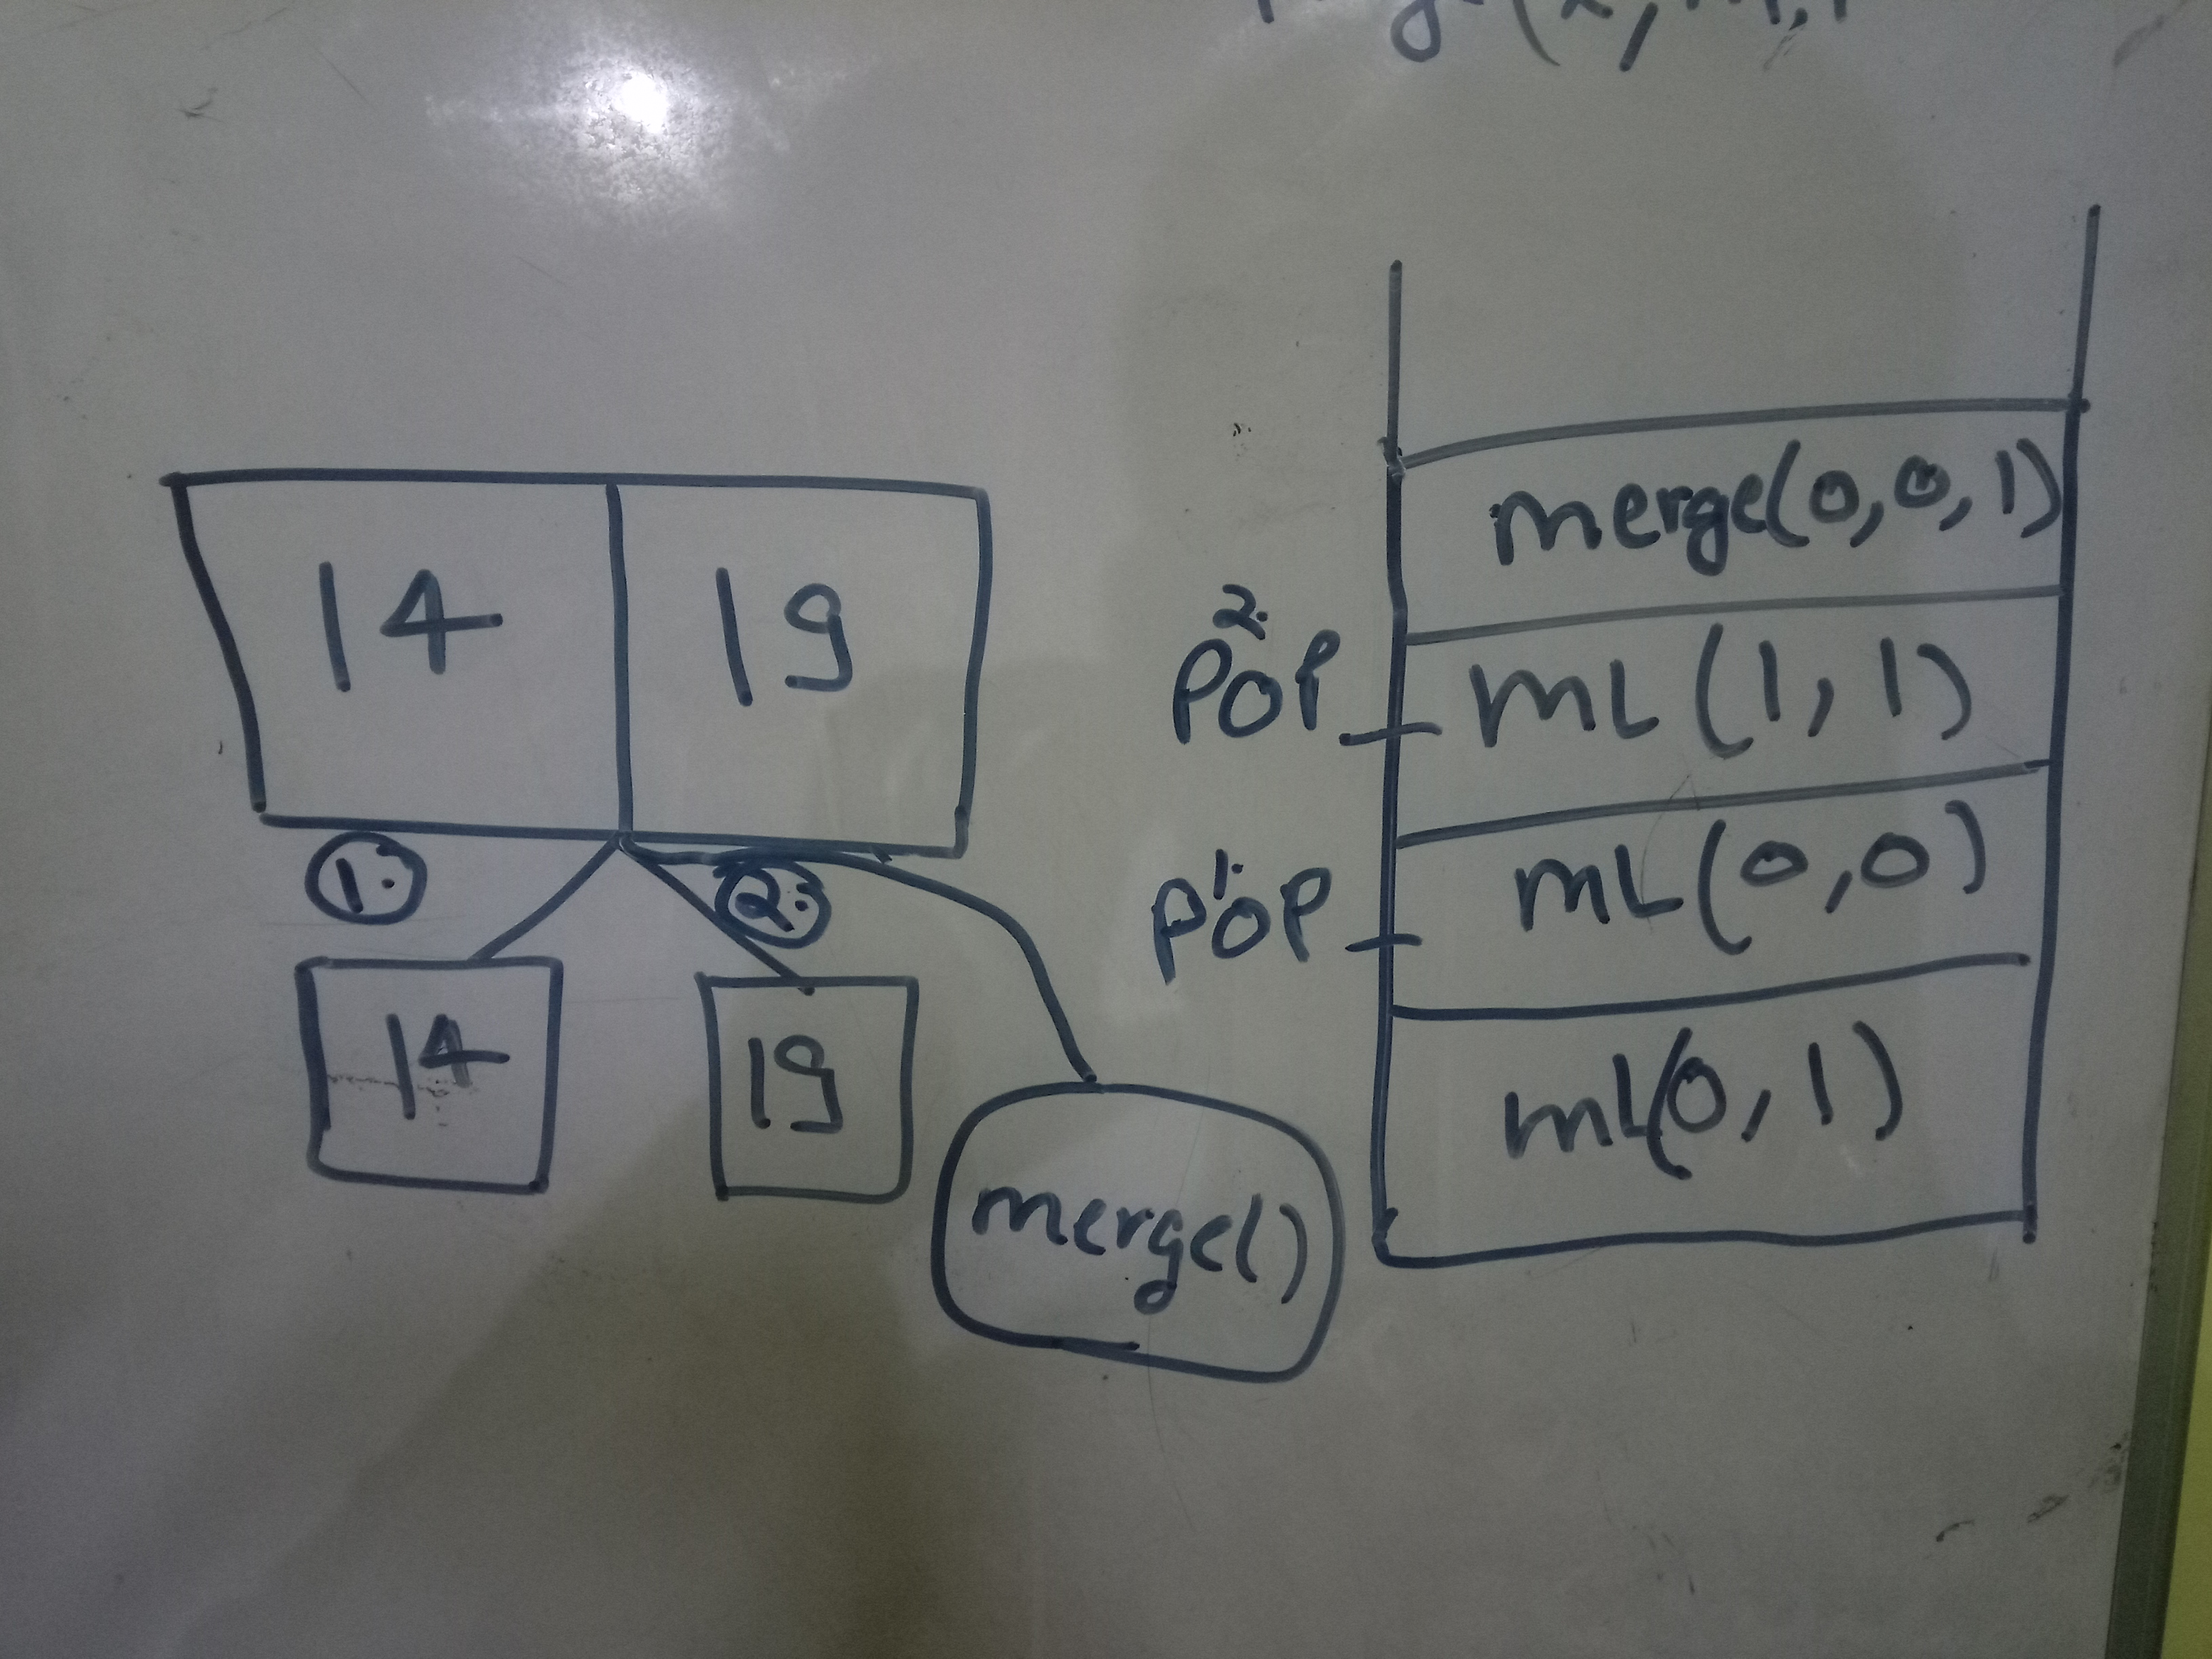 14 19
1. 2.
14 19
merge()
merge(0,0,1)
2.
POP mL(1,1)
1.
POP mL(0,0)
mL(0,1)